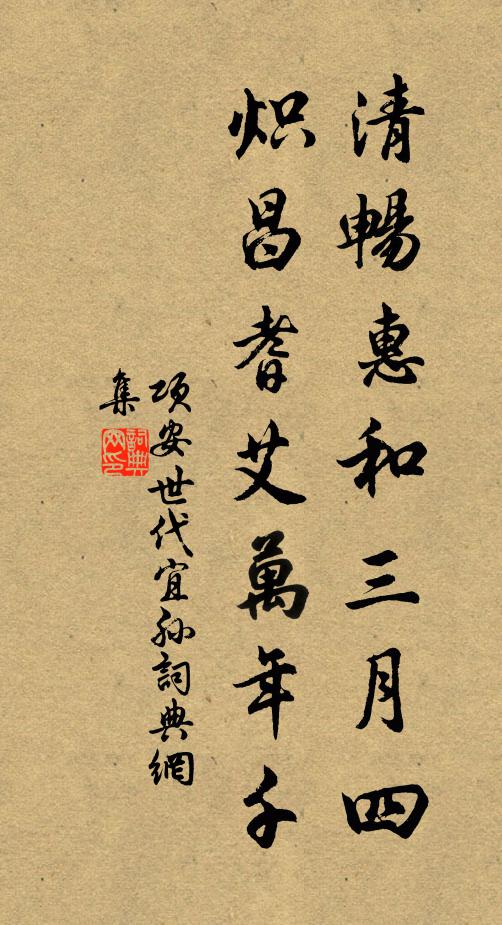 清暢惠和三月四
熾昌耆艾萬年千
項安世代宜孫詞典網
集
詞典網印